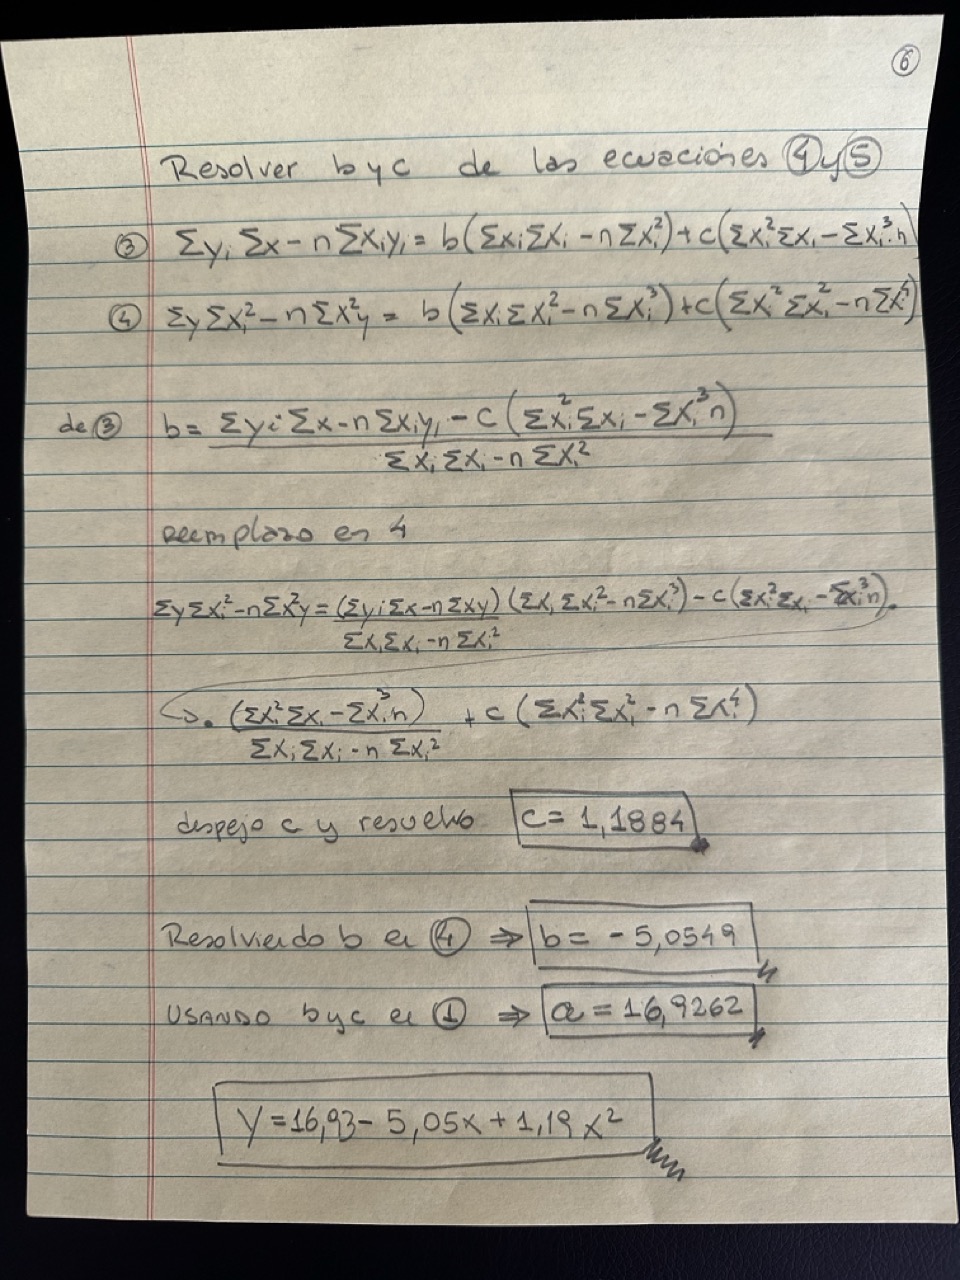 ⑥
Resolver b y c de las ecuaciones ④ y ⑤
③ Σyᵢ Σx - n Σxᵢyᵢ = b(Σxᵢ Σxᵢ - n Σxᵢ²) + c(Σxᵢ² Σxᵢ - Σxᵢ³ n)
④ Σy Σxᵢ² - n Σxᵢ²y = b(Σxᵢ Σxᵢ² - n Σxᵢ³) + c(Σxᵢ² Σxᵢ² - n Σxᵢ⁴)
de ③ b = Σyᵢ Σx - n Σxᵢyᵢ - c(Σxᵢ² Σxᵢ - Σxᵢ³ n)
Σxᵢ Σxᵢ - n Σxᵢ²
reemplazo en 4
Σy Σxᵢ² - n Σxᵢ²y = (Σyᵢ Σx - n Σxy) (Σxᵢ Σxᵢ² - n Σxᵢ³) - c(Σxᵢ² Σxᵢ - Σxᵢ³ n).
Σxᵢ Σxᵢ - n Σxᵢ²
. (Σxᵢ² Σxᵢ - Σxᵢ³ n) + c(Σxᵢ² Σxᵢ² - n Σxᵢ⁴)
Σxᵢ Σxᵢ - n Σxᵢ²
despejo c y resuelvo c = 1,1884
Resolviendo b en ④ ⇒ b = - 5,0549
USANDO b y c en ① ⇒ a = 16,9262
y = 16,93 - 5,05x + 1,19 x²